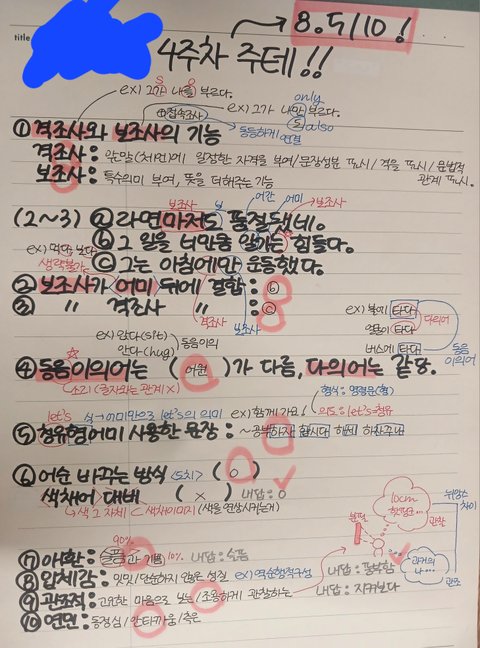 title
8.5/10 !
4주차 주테!!
ex) 그가 나를 부르다.
S O
only
ex) 그가 나만 부르다.
도 also
접속조사
동등하게 연결
① 격조사와 보조사의 기능
격조사: 앞말(체언)에 일정한 자격을 부여/문장성분 표시/격을 표시/문법적 관계 표시.
보조사: 특수의미 부여, 뜻을 더해주는 기능
보조사 보 어간 어미 보조사
(2~3) ⓐ 라면마저도 품절됐네.
ⓑ 그 일을 힘들다.
ⓒ 그는 아침에만 운동했다.
생략불가
격조사
보조사
② 보조사가 어미 뒤에 결합: ⓑ
③ 〃 격조사 〃 : ⓒ
ex) 불에 타다
타다
버스에 타다
다의어
동음이의어
ex) 앉다(sit)
안다(hug)
동음이의
④ 동음이의어는 ( 어원 )가 다름, 다의어는 같당.
소리(글자와는 관계X)
let's let's의 의미 ex) 함께 가요
let's청유
⑤ 청유형어미 사용한 문장: ~공부하자 합시다
⑥ 어순 바꾸는 방식 <도치> ( O )
색채어 대비 ( X ) 내답: O
색 그 자체 ⊂ 색채이미지 (색을 연상시키는게)
10cm
관찰
뉘앙스 차이
과거의 나...
관조
90%
⑦ 애환: 슬픔과 기쁨 10% 내답: 슬픔
⑧ 입체감: 밋밋/단순하지 않은 성질 ex) 역순행적구성 내답:
⑨ 관조적: 고요한 마음으로 보는/조용하게 관찰하는 내답: 지켜보다
⑩ 연민: 동정심/안타까움/측은